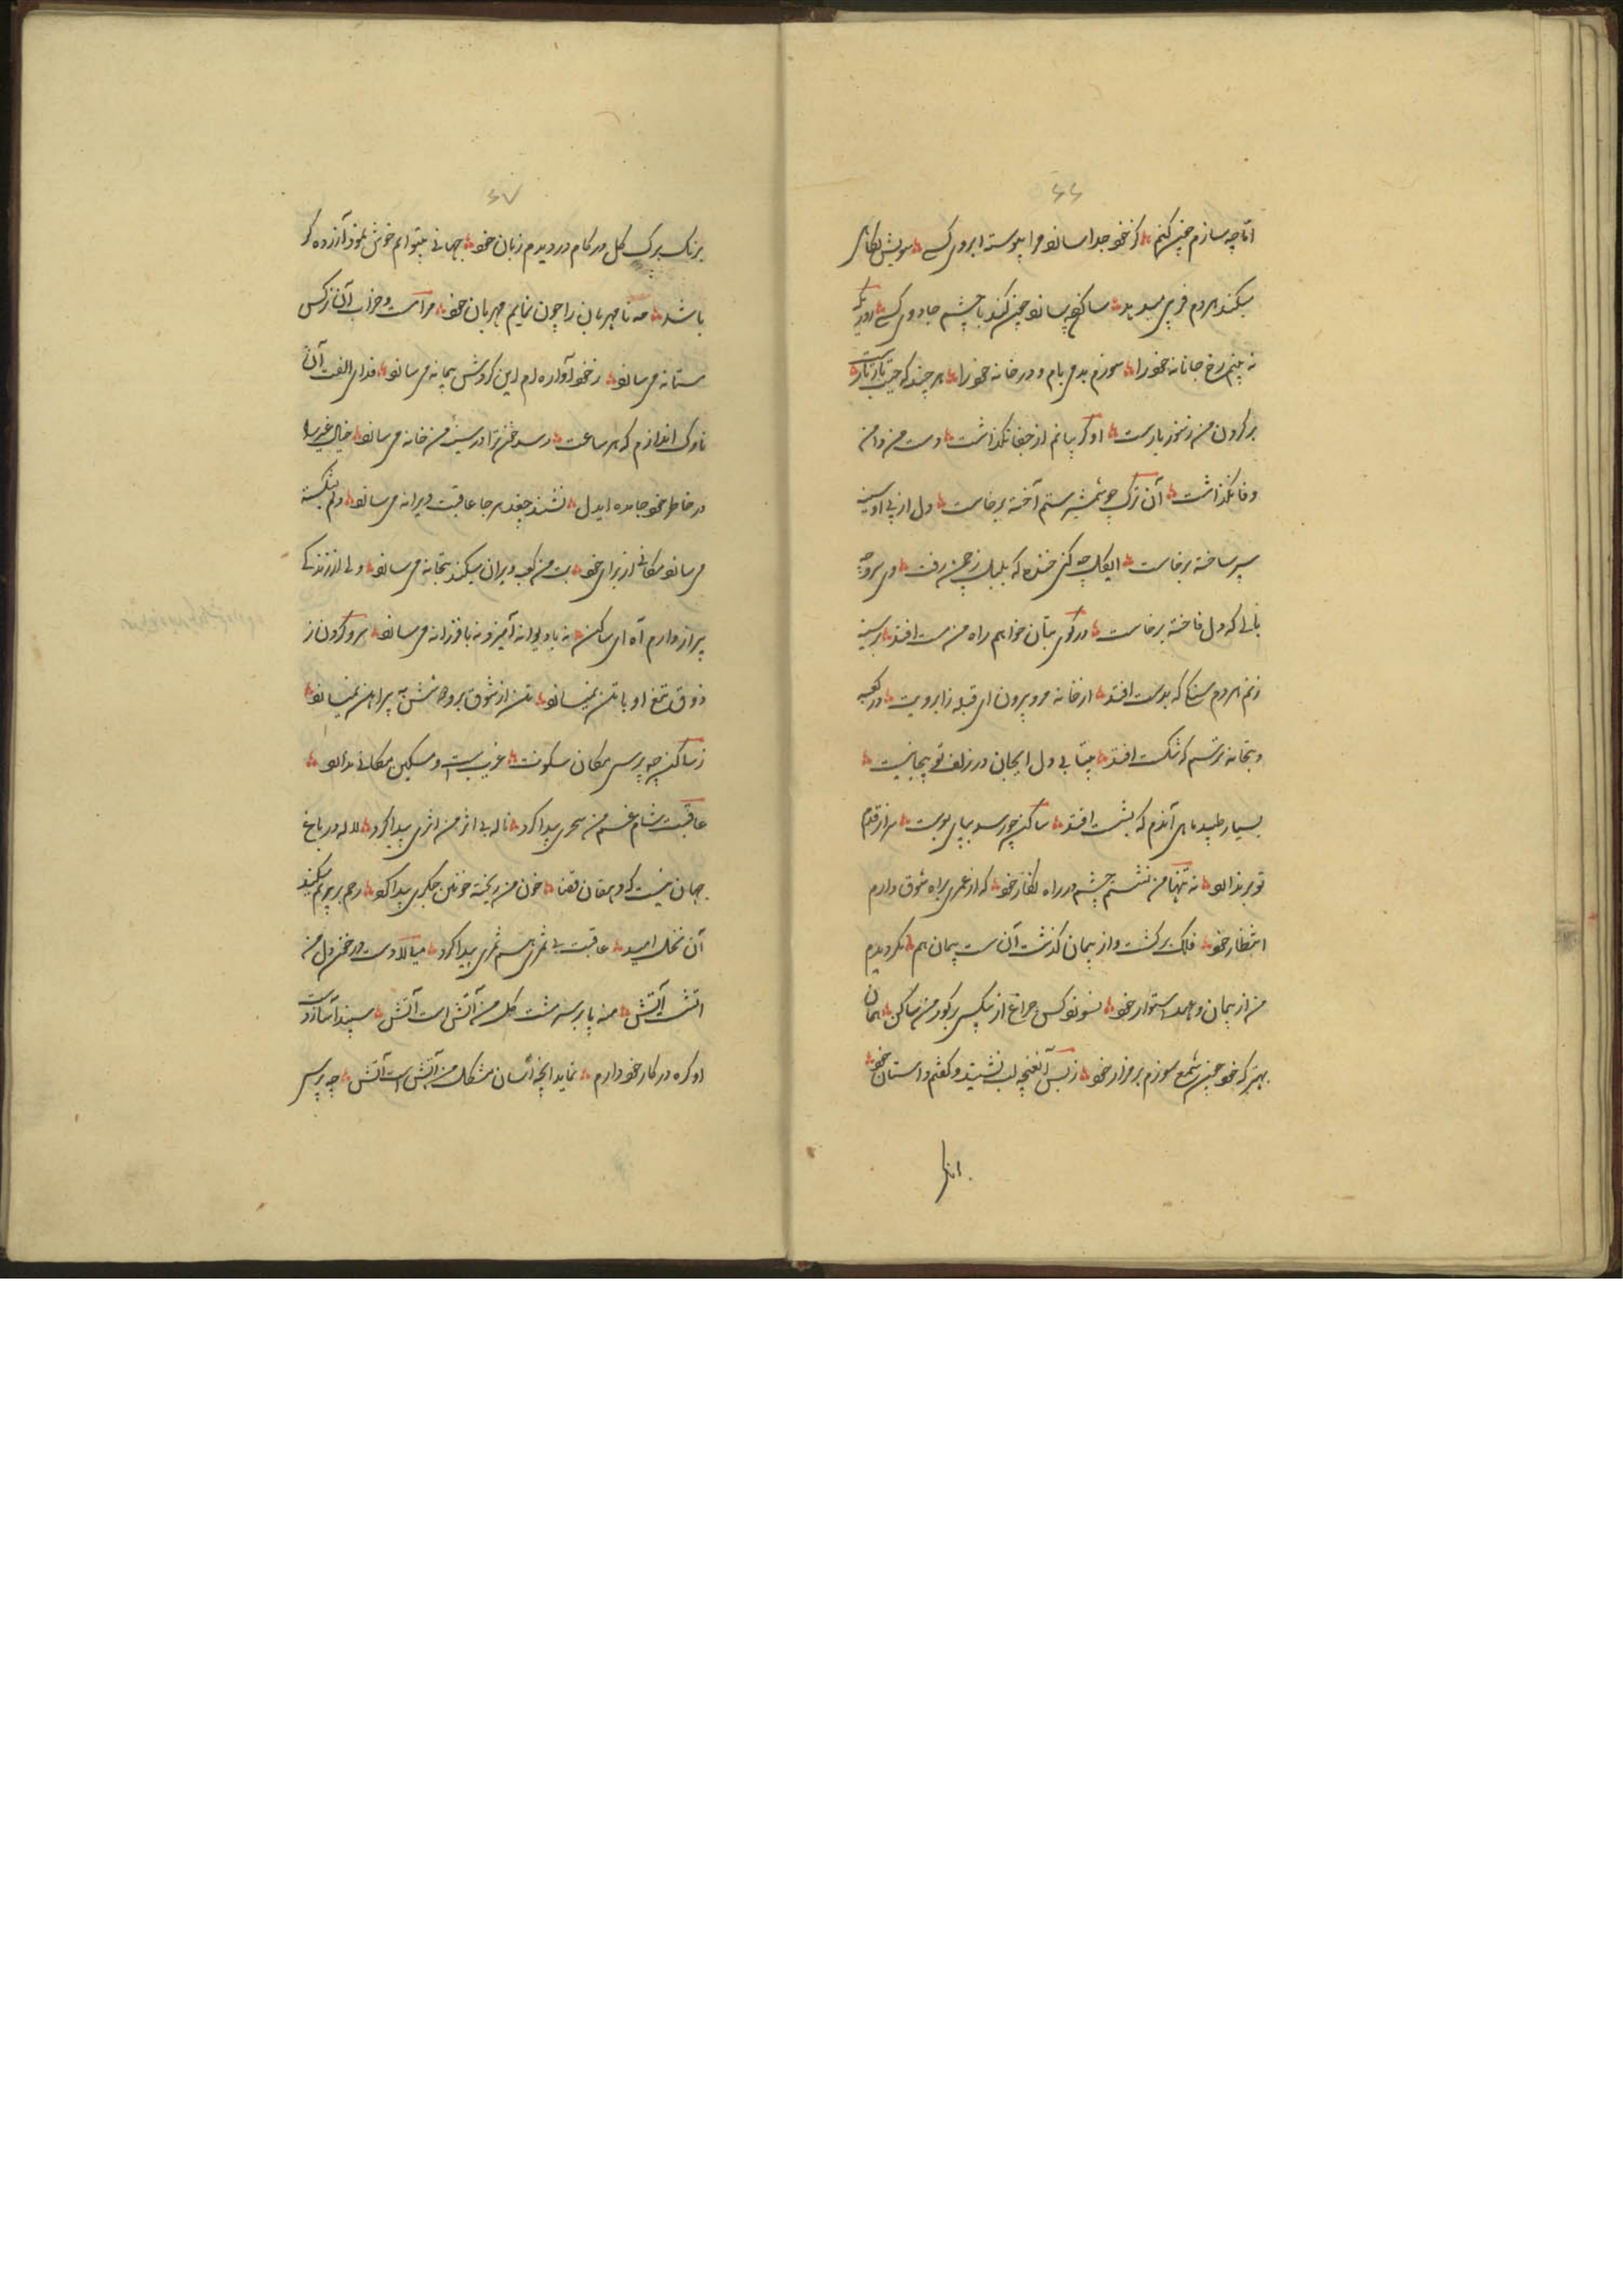 ۶۶
اما چه سازم چنین کنم ؞ کز خود جدا سازد مرا پیوسته ابروی کسے ؞ سویش نگاهی
میکند هر دم فریبی میدهد ؞ ساکن چه سازد چین کند با چشم جادوی کسے ؞ روزیکه
نه بینم رخ جانانه خود را ؞ سوزم بدمی بام و در خانه خود را ؞ هر چند که
بر گردن من هنوز بارست ؞ او گر پیانم از جفا نگذاشت ؞ دست من دامن
وفا نگذاشت ؞ آن ترک چو شمشیر ستم آخته برخاست ؞ دل از پی او سینه
سپر ساخته برخاست ؞ ایگل چه کنی خنده که بلبل ز چمن رفت ؞
بالے که دل فاخته برخاست ؞ در کوی بتان خواهم راه من مست افتد ؞ بر سینه
زنم هر دم سنگی که بدست افتد ؞ از خانه مرو بیرون ای قبله ز ابرویت ؞ در کعبه
و بتخانه ترسم که شکست افتد ؞ بیتابی دل ایجان در زلف تو پیجا نیست ؞
بسیار طپید ماهی آندم که بشست افتد ؞ ساکن چو رسد بپای بوست ؞ سر از قدم
تو بر ندارد ؞ نه تنها من نشستم چشم در راه نگار خود ؞ که او عمری براه شوق دارم
انتظار خود ؞ فلک برگشت و از پیمان گذشت آن سست پیمان هم ؞ نگردیدم
من از پیمان و عهد استوار خود ؞ نسوزد کس چراغ از بیکسی بر گور من ساکن ؞ همان
بهتر که خود چنین شمع سوزم بر مزار خود ؞ ز بس آن غنچه لب نشنید و گفتم داستان خود ؞
۶۷
برنگ برگ گل در کام دزدیدم زبان خود ؞ جهانے بیتو ام خوش بلفظ آزرده گر
باشد ؞ مه نامهربان را چون نمایم مهربان خود ؞ مرا مست و خراب آن نرگس
مستانه می سازد ؞ ز خود آواره ام این گردش پیمانه می سازد ؞ فدای الفت آن
ناوک اندازم که هر ساعت ؞ رسد در سینه من خانه می سازد ؞ خیال غیر را
در خاطر خود جا مده ایدل ؞ نشیند جغد هر جا عاقبت ویرانه می سازد ؞ دلم بشکسته
می سازد مکانے از برای خود ؞ بت من کعبه ویران میکند بتخانه می سازد ؞
پر از دارم آه ای ساکن ؞ نه با دیوانه آمیزد نه با فرزانه می سازد ؞ سر و گردن ز
ذوق تیغ او با تن نمیسازد ؞ تن از شوق بر و دوشش به پیراهن نمیسازد ؞
ز ساکن چه پرسی مکان سکونت ؞ غریب ست و مسکین مکانے ندارد ؞
عاقبت شام غمم من سحری پیدا کرد ؞ ناله بی اثر من اثری پیدا کرد ؞ لاله در باغ
جهان نیست که دهقان قضا ؞ خون من ریخته خونین جگری پیدا کرد ؞ رحم بر بریم میکند
آن نخل امید ؞ عاقبت بی ثمری هم ثمری پیدا کرد ؞ میالا دست در خون دل من
آتشست آتش ؞ منه پا بر سر مشت گل من آتش است آتش ؞ سپند آسا
او گره در کار خود دارم ؞ نماید انچه آسان مشکل من آتش است آتش ؞ چه پرسی